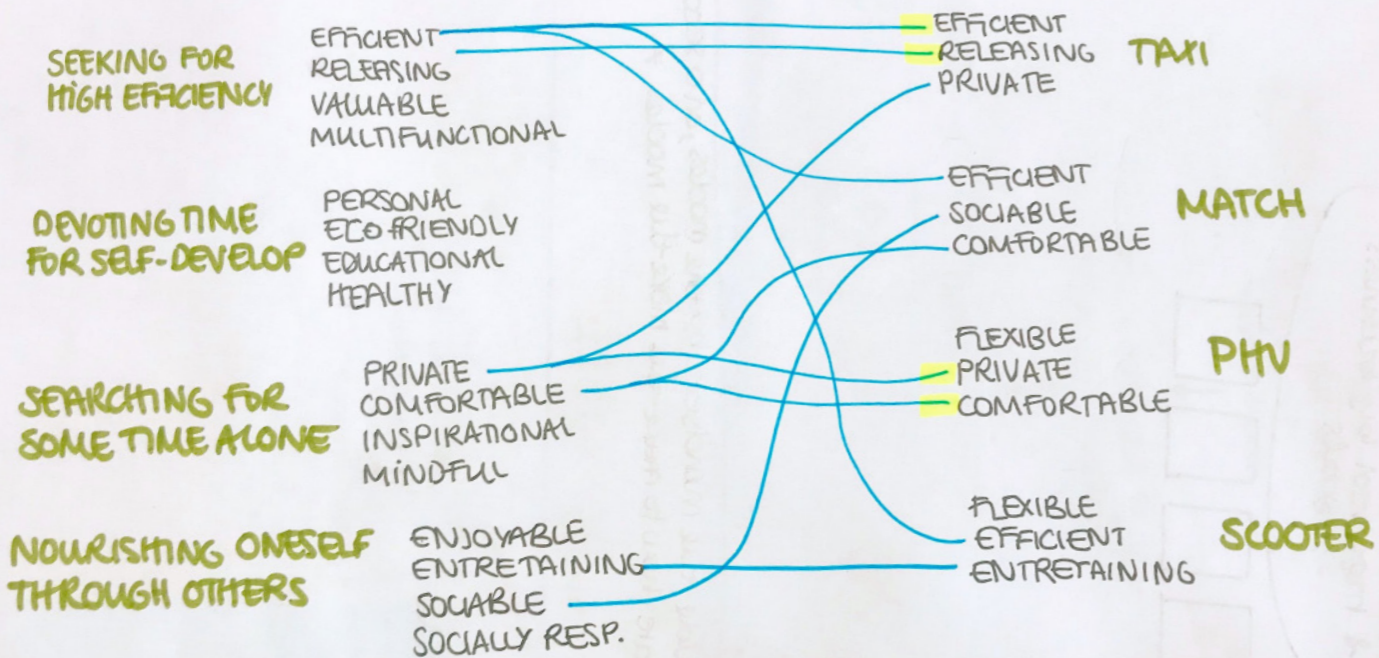 SEEKING FOR
HIGH EFFICIENCY
EFFICIENT
RELEASING
VALUABLE
MULTIFUNCTIONAL
DEVOTING TIME
FOR SELF-DEVELOP
PERSONAL
ECO FRIENDLY
EDUCATIONAL
HEALTHY
SEARCHING FOR
SOME TIME ALONE
PRIVATE
COMFORTABLE
INSPIRATIONAL
MINDFUL
NOURISHING ONESELF
THROUGH OTHERS
ENJOYABLE
ENTRETAINING
SOCIABLE
SOCIALLY RESP.
EFFICIENT
RELEASING
PRIVATE
TAXI
EFFICIENT
SOCIABLE
COMFORTABLE
MATCH
FLEXIBLE
PRIVATE
COMFORTABLE
PHV
FLEXIBLE
EFFICIENT
ENTRETAINING
SCOOTER